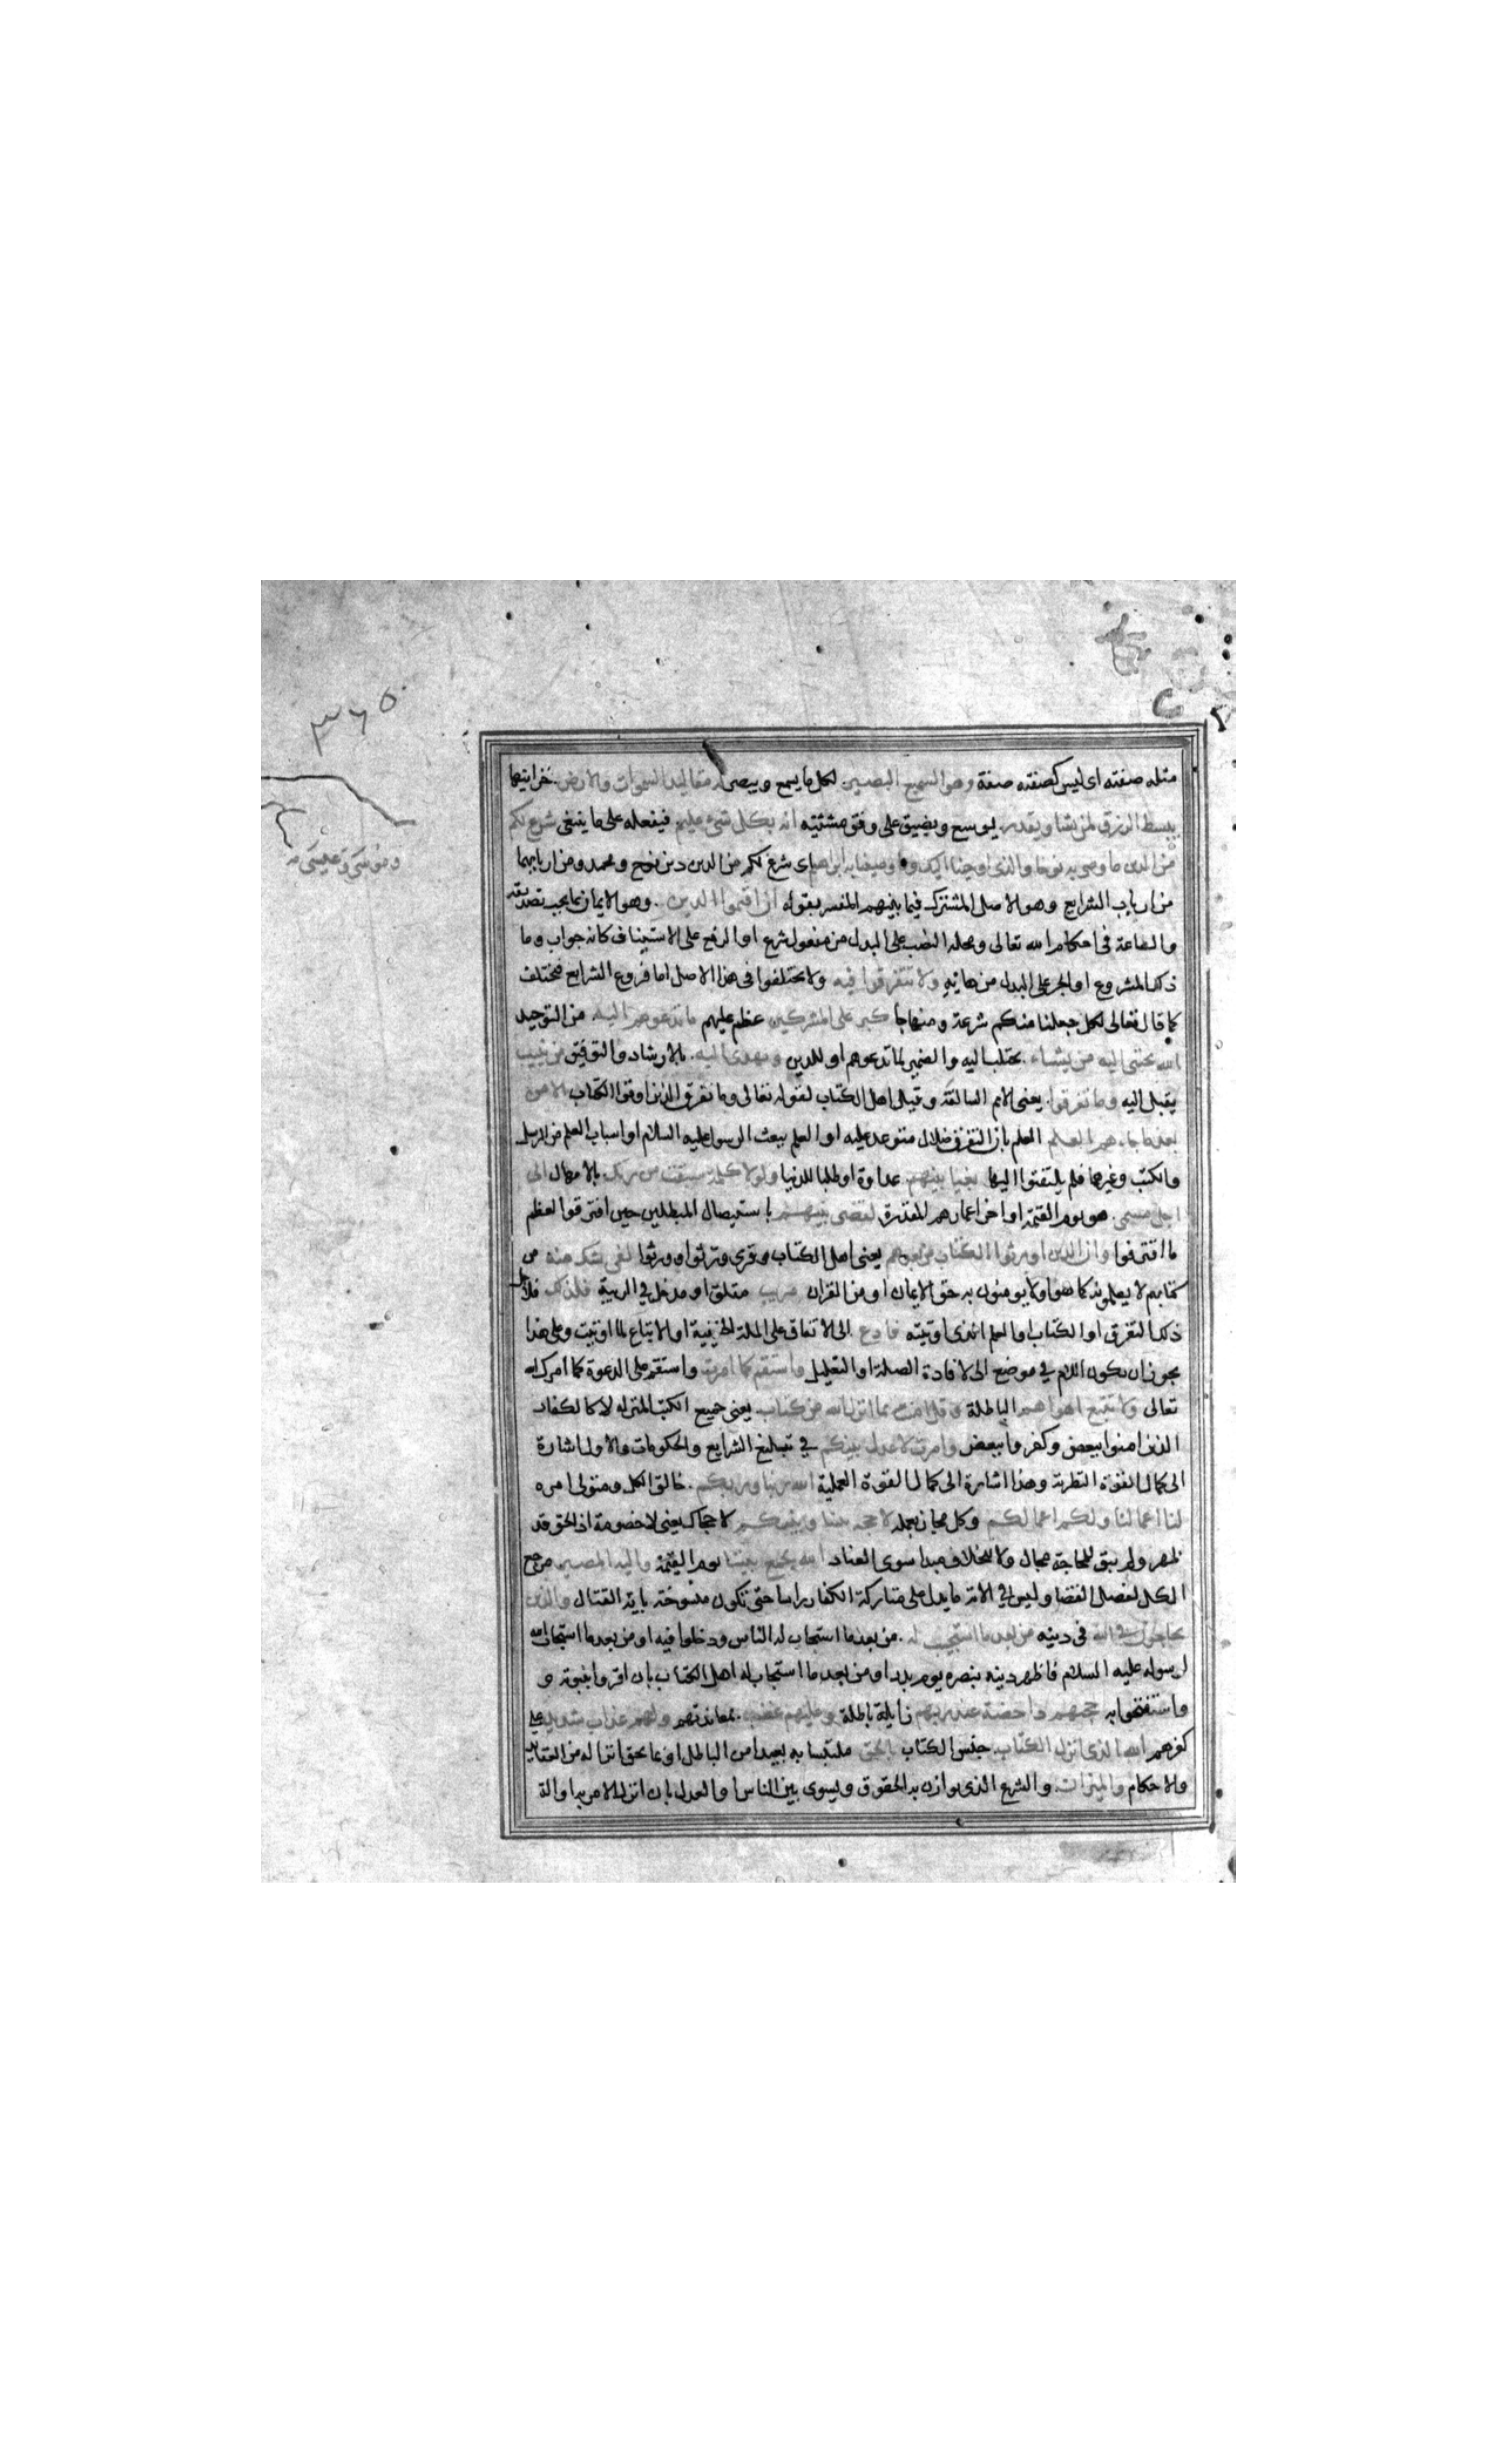 ٣٦٥
مثله صفته اى ليس كصفته صفة وهو السميع البصير لكل ما يسمع ويبصر له مقاليد السموات والارض خزاينها
يبسط الرزق لمن يشا ويقدر يوسع ويضيق على وفق مشئيته انه بكل شئ عليم فيفعله على ما ينبغى شرع لكم
من الدين ما وصى به نوحا والذى اوحينا اليك وما وصينا به ابراهيم اى شرع لكم من الدين دين نوح ومحمد ومن بينهما
وموسى وعيسى
من ارباب الشرايع وهو الاصل المشترك فيما بينهم المفسر بقوله ان اقيموا الدين وهو الايمان بما يجب تصديقه
والطاعة فى احكام الله تعالى ومحله النصب على البدل من مفعول شرع او الرفع على الاستيناف كانه جواب وما
ذلك المشروع او الجر على البدل من هابه ولا تتفرقوا فيه ولا تختلفوا فى هذا الاصل اما فروع الشرايع فمختلف
كما قال تعالى لكل جعلنا منكم شرعة ومنهاجا كبر على المشركين عظم عليهم ما تدعوهم اليه من التوحيد
الله يجتبى اليه من يشاء يجتلب اليه والضمير لما تدعوهم او للدين ويهدى اليه بالارشاد والتوفيق من ينيب
يقبل اليه وما تفرقوا يعنى الامم السالفة وقيل اهل الكتاب لقوله تعالى وما تفرق الذين اوتوا الكتاب الا من
بعد ما جاءهم العلم العلم بان التفرق ضلال متوعد عليه او العلم ببعث الرسول عليه السلام او اسباب العلم من الرسل
والكتب وغيرها فلم يلتفتوا اليها بغيا بينهم عداوة او طلبا للدنيا ولولا كلمة سبقت من ربك بالامهال الى
اجل مسمى هو يوم القيمة او اخر اعمارهم المقدرة لقضى بينهم باستيصال المبطلين حين افترقوا لعظم
ما اقترفوا وان الذين اورثوا الكتاب من بعدهم يعنى اهل الكتاب وقرى ورثوا وورثوا لفى شك منه من
كتابهم لا يعلمونه كما هو اولا يومنون به حق الايمان او من القران مريب مقلق او مدخل فى الريبة فلذلك فلاجل
ذلك التفرق او الكتاب او العلم الذى اوتيته فادع الى الاتفاق على الملة الحنيفية او الاتباع لما اوتيت وعلى هذا
يجوز ان يكون اللام فى موضع الى لافادة الصلة او التعليل واستقم كما امرت واستقم على الدعوة كما امرك الله
تعالى ولا تتبع اهواهم الباطلة وقل امنت بما انزل الله من كتاب يعنى جميع الكتب المنزله لا كالكفار
الذين امنوا ببعض وكفروا ببعض وامرت لاعدل بينكم فى تبليغ الشرايع والحكومات والاول اشارة
الى كمال القوة النظرية وهذا اشارة الى كمال القوة العملية الله ربنا وربكم خالق الكل ومتولى امره
لنا اعمالنا ولكم اعمالكم وكل مجاز بعمله لا حجة بيننا وبينكم لا حجاج يعنى لا خصومة اذ الحق قد
ظهر ولم يبق للمحاجة مجال ولا للخلاف مبدا سوى العناد الله يجمع بيننا يوم القيمة واليه المصير مرجع
الكل لفصل القضا وليس فى الاية ما يدل على متاركة الكفار راسا حتى تكون منسوخة باية القتال والذين
يحاجون فى الله فى دينه من بعد ما استجيب له من بعد ما استجاب له الناس ودخلوا فيه او من بعد ما استجاب الله
لرسوله عليه السلام فاظهر دينه بنصره يوم بدر او من بعد ما استجاب له اهل الكتاب بان اقروا بنبوته و
واستفتحوا به حجتهم داحضة عند ربهم زايلة باطلة وعليهم غضب بمعاندتهم ولهم عذاب شديد على
كفرهم الله الذى انزل الكتاب جنس الكتاب بالحق ملتبسا به بعيدا من الباطل او بما يحق انزاله من العقايد
والاحكام والميزان والشرع الذى يوازن به الحقوق ويسوى بين الناس او العدل بان انزل الامر به او الة